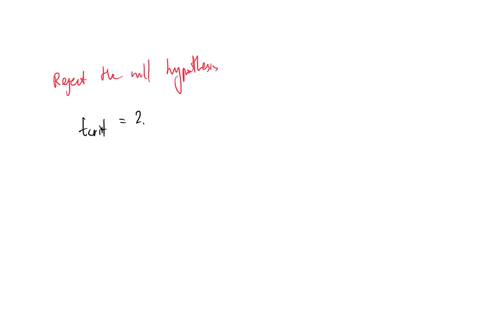 Reject the null hypothesis
tcrit = 2.